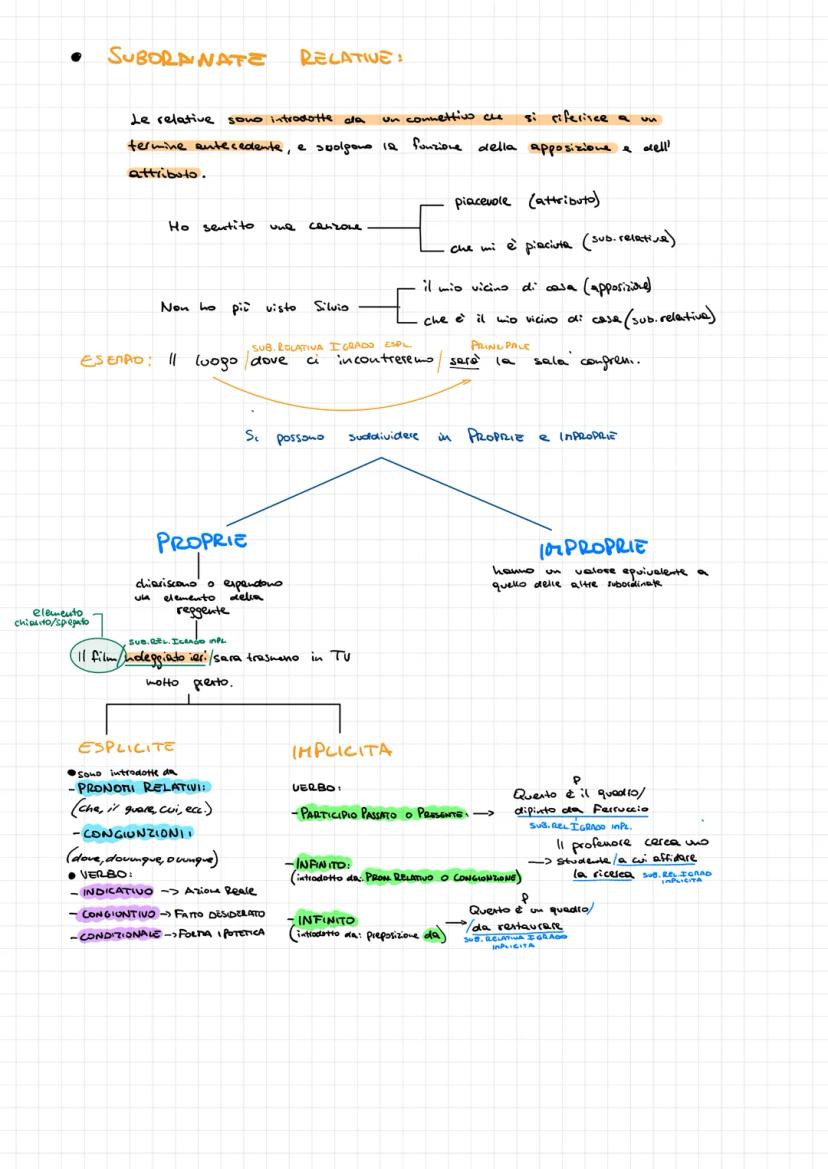 • SUBORDINATE RELATIVE:
Le relative sono introdotte da un connettivo che si riferisce a un
termine antecedente, e svolgono la funzione della apposizione e dell'
attributo.
Ho sentito una canzone
piacevole (attributo)
che mi è piaciuta (sub. relativa)
Non ho più visto Silvio
il mio vicino di casa (apposizione)
che è il mio vicino di casa (sub. relativa)
SUB. RELATIVA I GRADO ESPL. PRINCIPALE
ESEMPIO: Il luogo / dove ci incontreremo / sarà la sala congressi.
Si possono suddividere in PROPRIE e IMPROPRIE
PROPRIE
chiariscono o espandono
un elemento della
reggente
IMPROPRIE
hanno un valore equivalente a
quello delle altre subordinate
elemento
chiarito/spiegato
SUB. REL. I GRADO IMPL.
Il film / noleggiato ieri / sara trasmesso in TV
molto presto.
ESPLICITE
• sono introdotte da
- PRONOMI RELATIVI:
(che, il quale, cui, ecc.)
- CONGIUNZIONI:
(dove, dovunque, ovunque)
• VERBO:
- INDICATIVO -> Azione Reale
- CONGIUNTIVO -> FATTO DESIDERATO
- CONDIZIONALE -> FORMA IPOTETICA
IMPLICITA
VERBO:
- PARTICIPIO PASSATO O PRESENTE: →
P
Questo è il quadro/
dipinto da Ferruccio
SUB. REL. I GRADO IMPL.
- INFINITO:
(introdotto da: PRON. RELATIVO O CONGIUNZIONE)
Il professore cerca uno
-> studente / a cui affidare
la ricerca SUB. REL. I GRAD
IMPLICITA
- INFINITO
(introdotto da: preposizione da)
P
→ Questo è un quadro/
/da restaurare
SUB. RELATIVA I GRADO
IMPLICITA